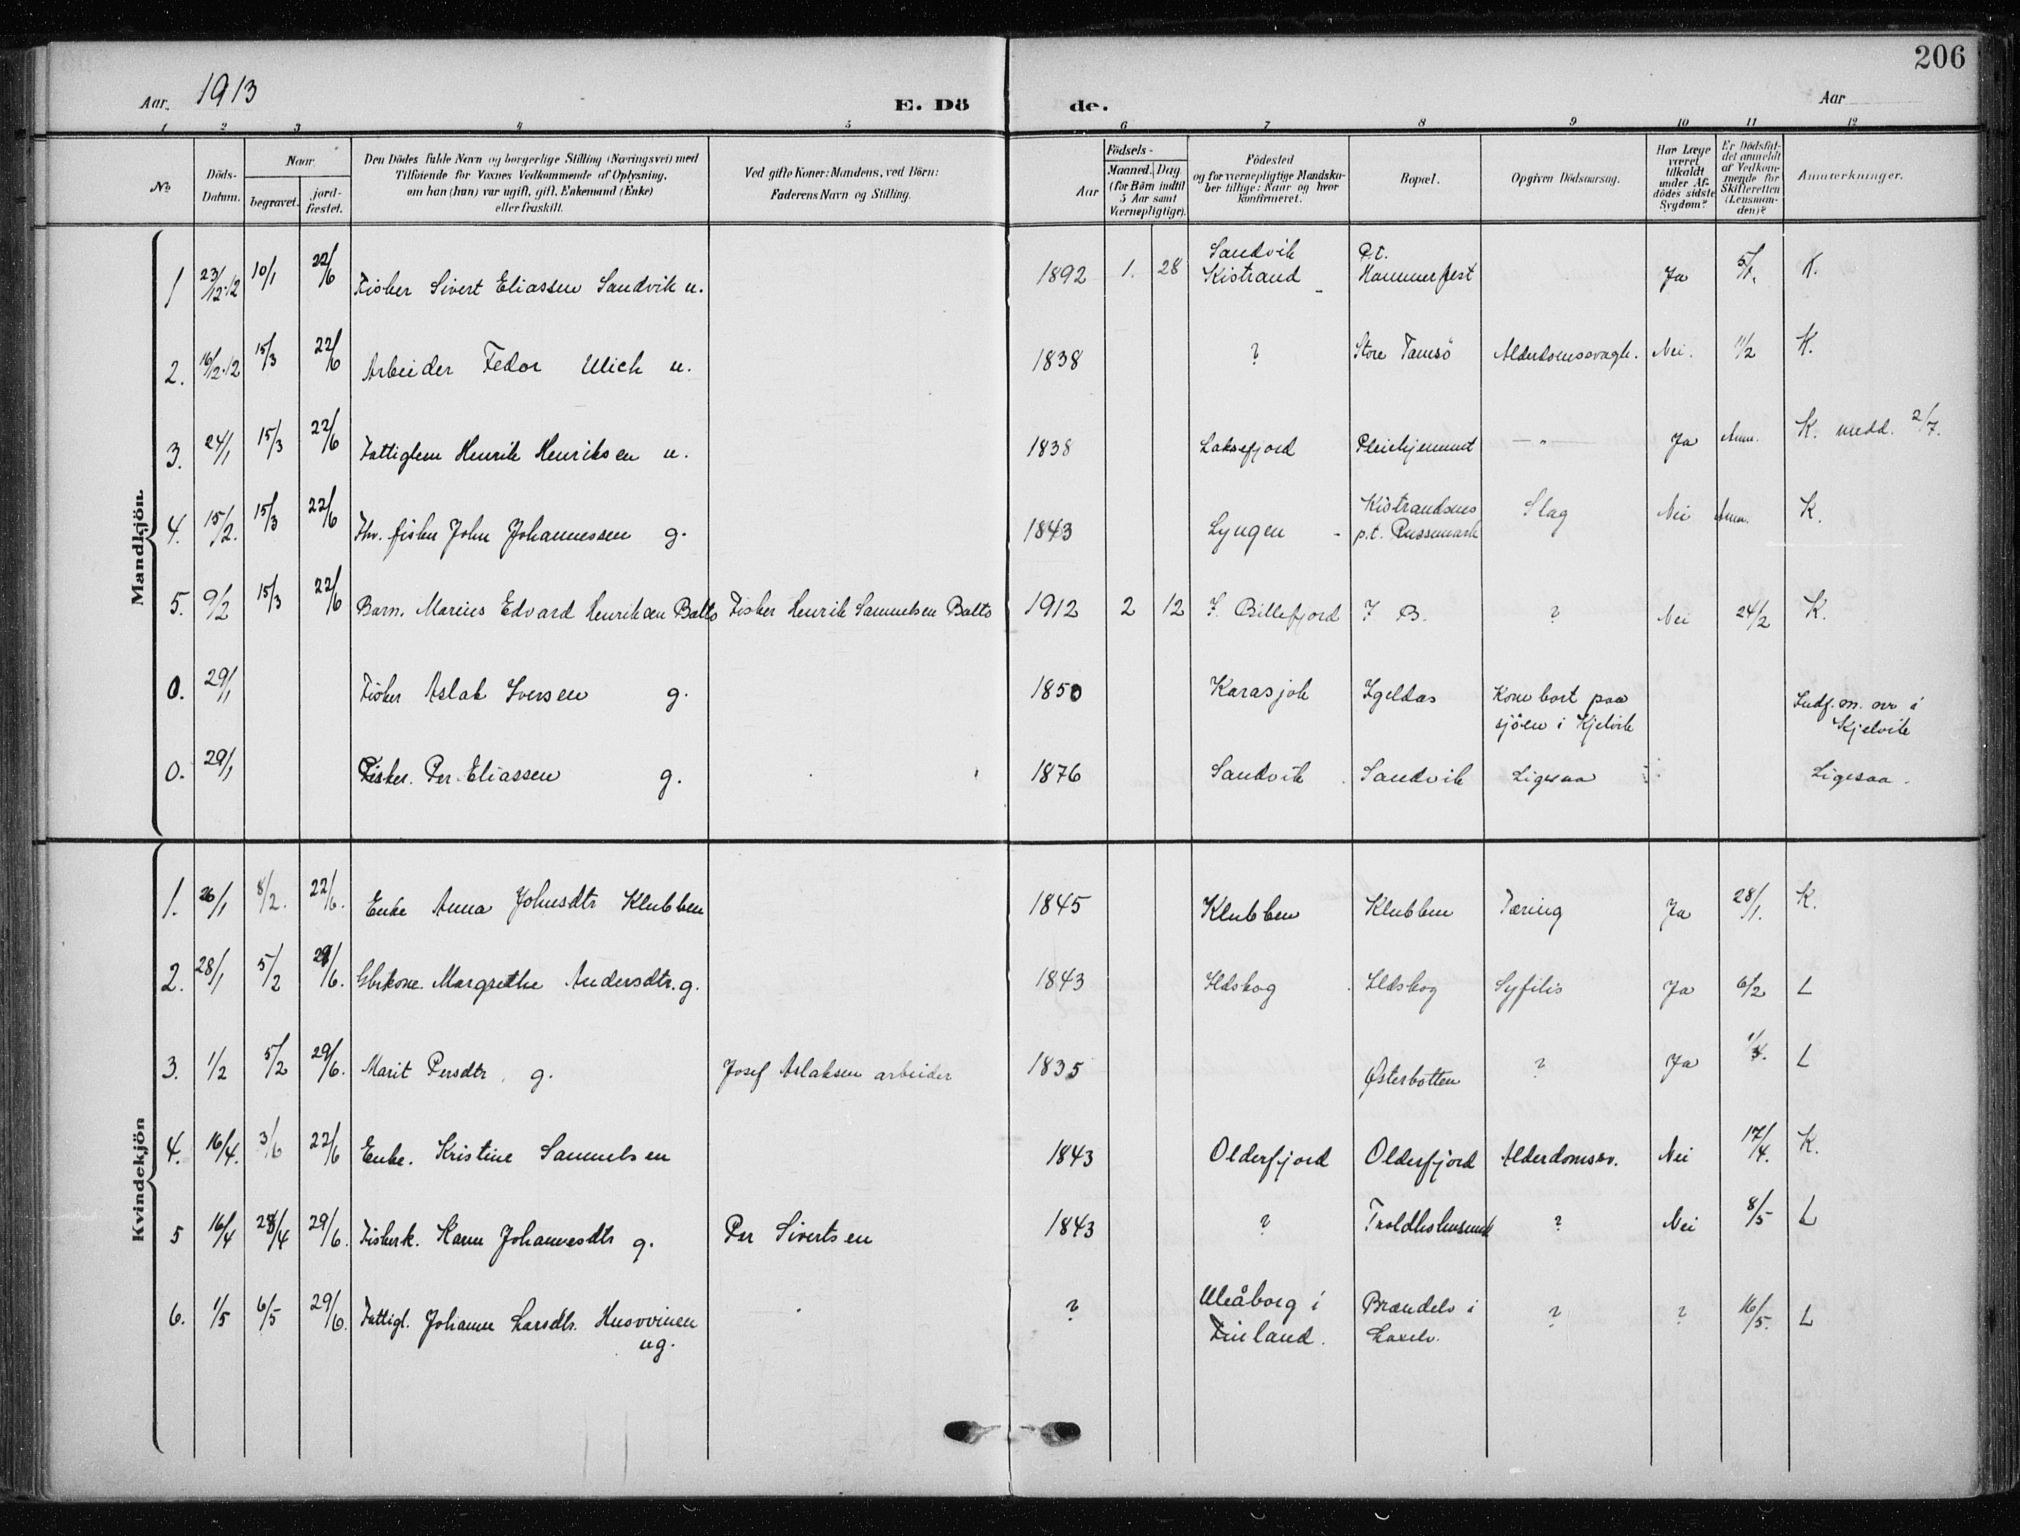 206
Aar. 1913 E. Dö de. Aar
1 2 3 4 5 6 7 8 9 10 11 12
No. Döds-Datum. Naar begravet. jord-fæstet. Den Dödes fulde Navn og borgerlige Stilling (Næringsvei) med Tilföiende for Voxnes Vedkommende af Oplysning, om han (hun) var ugift, gift, Enkemand (Enke) eller fraskilt. Ved gifte Koner: Mandens, ved Börn: Faderens Navn og Stilling. Födsels- Aar Maaned. Dag (for Börn indtil 5 Aar samt Værnepligtige). Födested og for værnepligtige Mandskaber tillige: Naar og hvor konfirmeret. Bopæl. Opgiven Dödsaarsag. Har Læge været tilkaldt under Afdödes sidste Sygdom? Er Dödsfaldet anmeldt af Vedkommende for Skifteretten (Lensmanden)? Anmærkninger.
Mandkjön.
1 23/12.12 10/1 22/6 Fisker Sivert Eliassen Sandvik u. 1892 1. 28 Sandvik Kistrand P.t. Hammerfest Ja 5/1. K.
2. 16/12.12 15/3 22/6 Arbeider Fedor Ulich u. 1838 ? Store Tamsö Alderdomssvagh. Nei. 11/2 K.
3. 24/1 15/3 22/6 Fattiglem Henrik Henriksen u. 1838 Laksefjord Pleiehjemmet — " — Ja Anm. K. medd. 2/7.
4. 15/2. 15/3 22/6 fisker John Johannessen g. 1843 Lyngen - Kistrandsnes p.t. Russemark Slag Nei Anm. K.
5. 9/2 15/3 22/6 Barn. Marius Edvard Henriksen Balto Fisker Henrik Samuelsen Balto 1912 2 12 I. Billefjord I B. ? Nei 24/2 K.
0. 29/1 Fisker Aslak Iversen g. 1850 Karasjok Igeldas Kom bort paa sjöen i Kjelvik Indf. m. nr i Kjelvik
0. 29/1 Fisker. Per Eliassen g. 1876 Sandvik Sandvik Ligesaa Ligesaa.
Kvindekjön
1. 26/1 8/2. 22/6. Enke Anna Johnsdtr Klubben 1845 Klubben Klubben Tæring Ja 28/1. K.
2. 28/1 5/2 29/6. Gbrkone Margrethe Andersdtr. g. 1843 Ildskog Ildskog Syfilis Ja 6/2 L
3. 1/2 5/2 29/6. Marit Persdtr. g. Josef Aslaksen arbeider 1835 Østerbotten ? Ja L
4. 16/4. 3/6 22/6 Enke. Kristine Samuelsen 1843 Olderfjord Olderfjord Alderdomssv. Nei 17/4. K.
5 16/4 28/4 29/6. Fisherk. Karen Johannesdtr g. Per Sivertsen 1843 ? Troldholmsund ? Nei 8/5 L
6. 1/5 6/5 29/6. Fattigl. Johanne Larsdtr. Husovinen ug. ? Uleåborg i Finland. Brændelv i Laxelv. ? ? 16/5. L